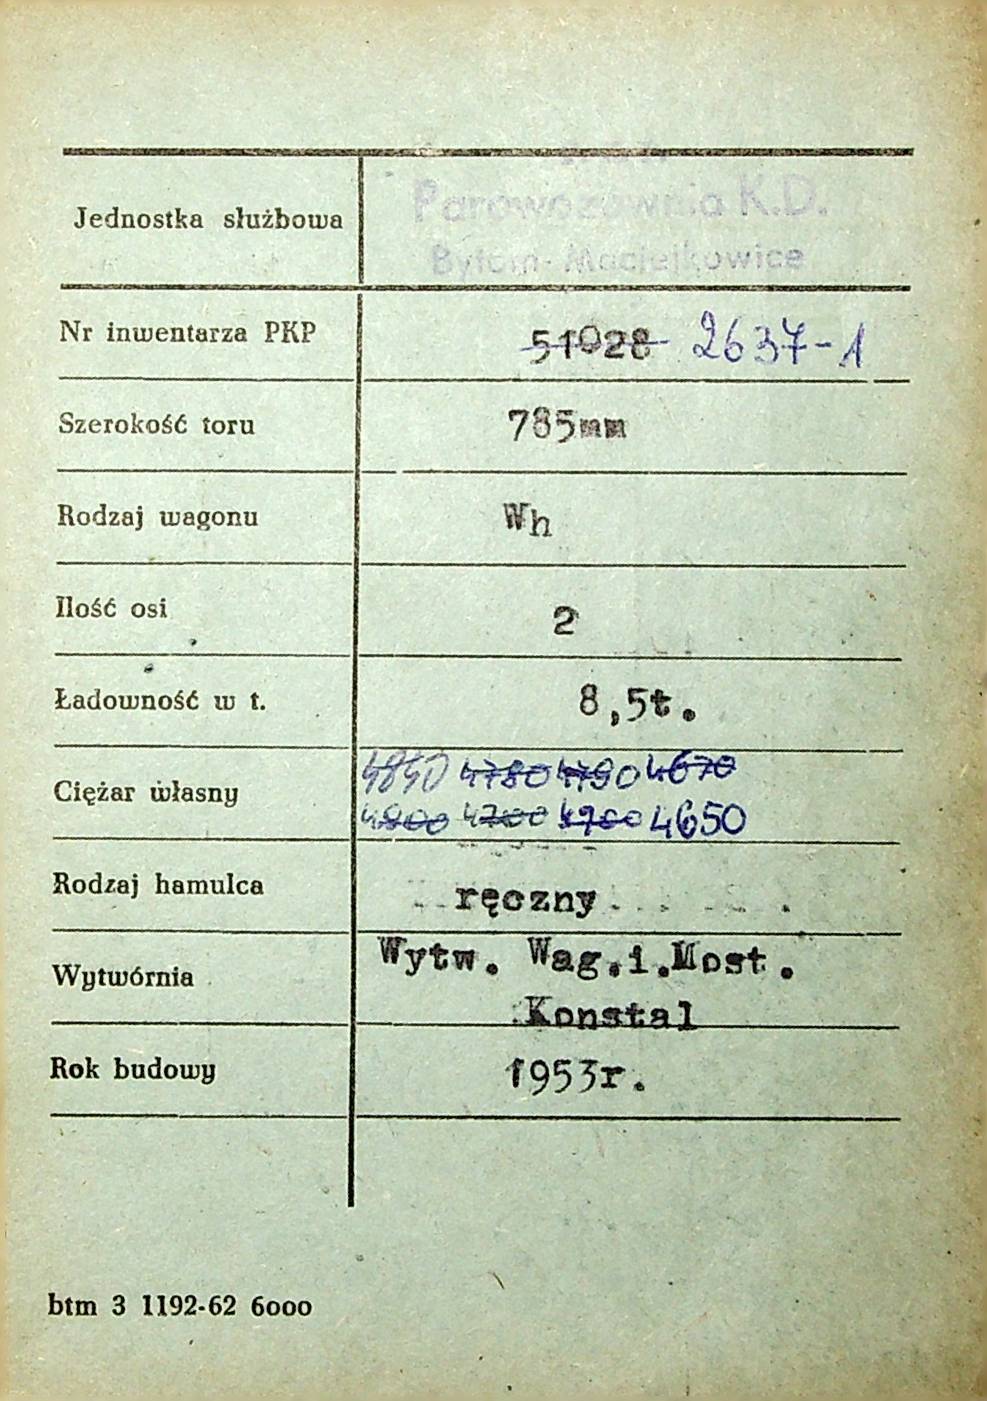 Jednostka służbowa
Parowozownia K.D.
Bytom-Maciejkowice
Nr inwentarza PKP 51028 2637-1
Szerokość toru 785mm
Rodzaj wagonu Wh
Ilość osi 2
Ładowność w t. 8,5t.
Ciężar własny
4840 4780 4790 4670
4800 4700 4700 4650
Rodzaj hamulca ręczny
Wytwórnia
Wytw. Wag.i.Most.
Konstal
Rok budowy 1953r.
btm 3 1192-62 6000